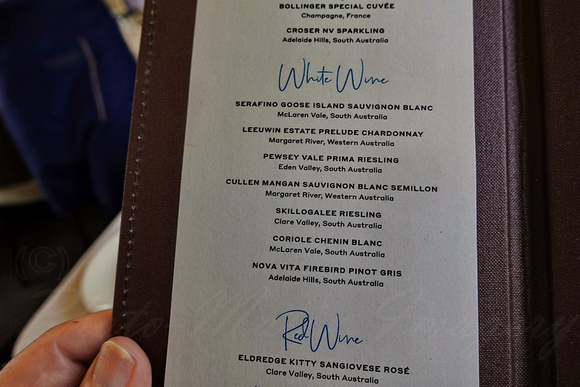 BOLLINGER SPECIAL CUVÉE
Champagne, France
CROSER NV SPARKLING
Adelaide Hills, South Australia
White Wine
SERAFINO GOOSE ISLAND SAUVIGNON BLANC
McLaren Vale, South Australia
LEEUWIN ESTATE PRELUDE CHARDONNAY
Margaret River, Western Australia
PEWSEY VALE PRIMA RIESLING
Eden Valley, South Australia
CULLEN MANGAN SAUVIGNON BLANC SEMILLON
Margaret River, Western Australia
SKILLOGALEE RIESLING
Clare Valley, South Australia
CORIOLE CHENIN BLANC
McLaren Vale, South Australia
NOVA VITA FIREBIRD PINOT GRIS
Adelaide Hills, South Australia
Red Wine
ELDREDGE KITTY SANGIOVESE ROSÉ
Clare Valley, South Australia